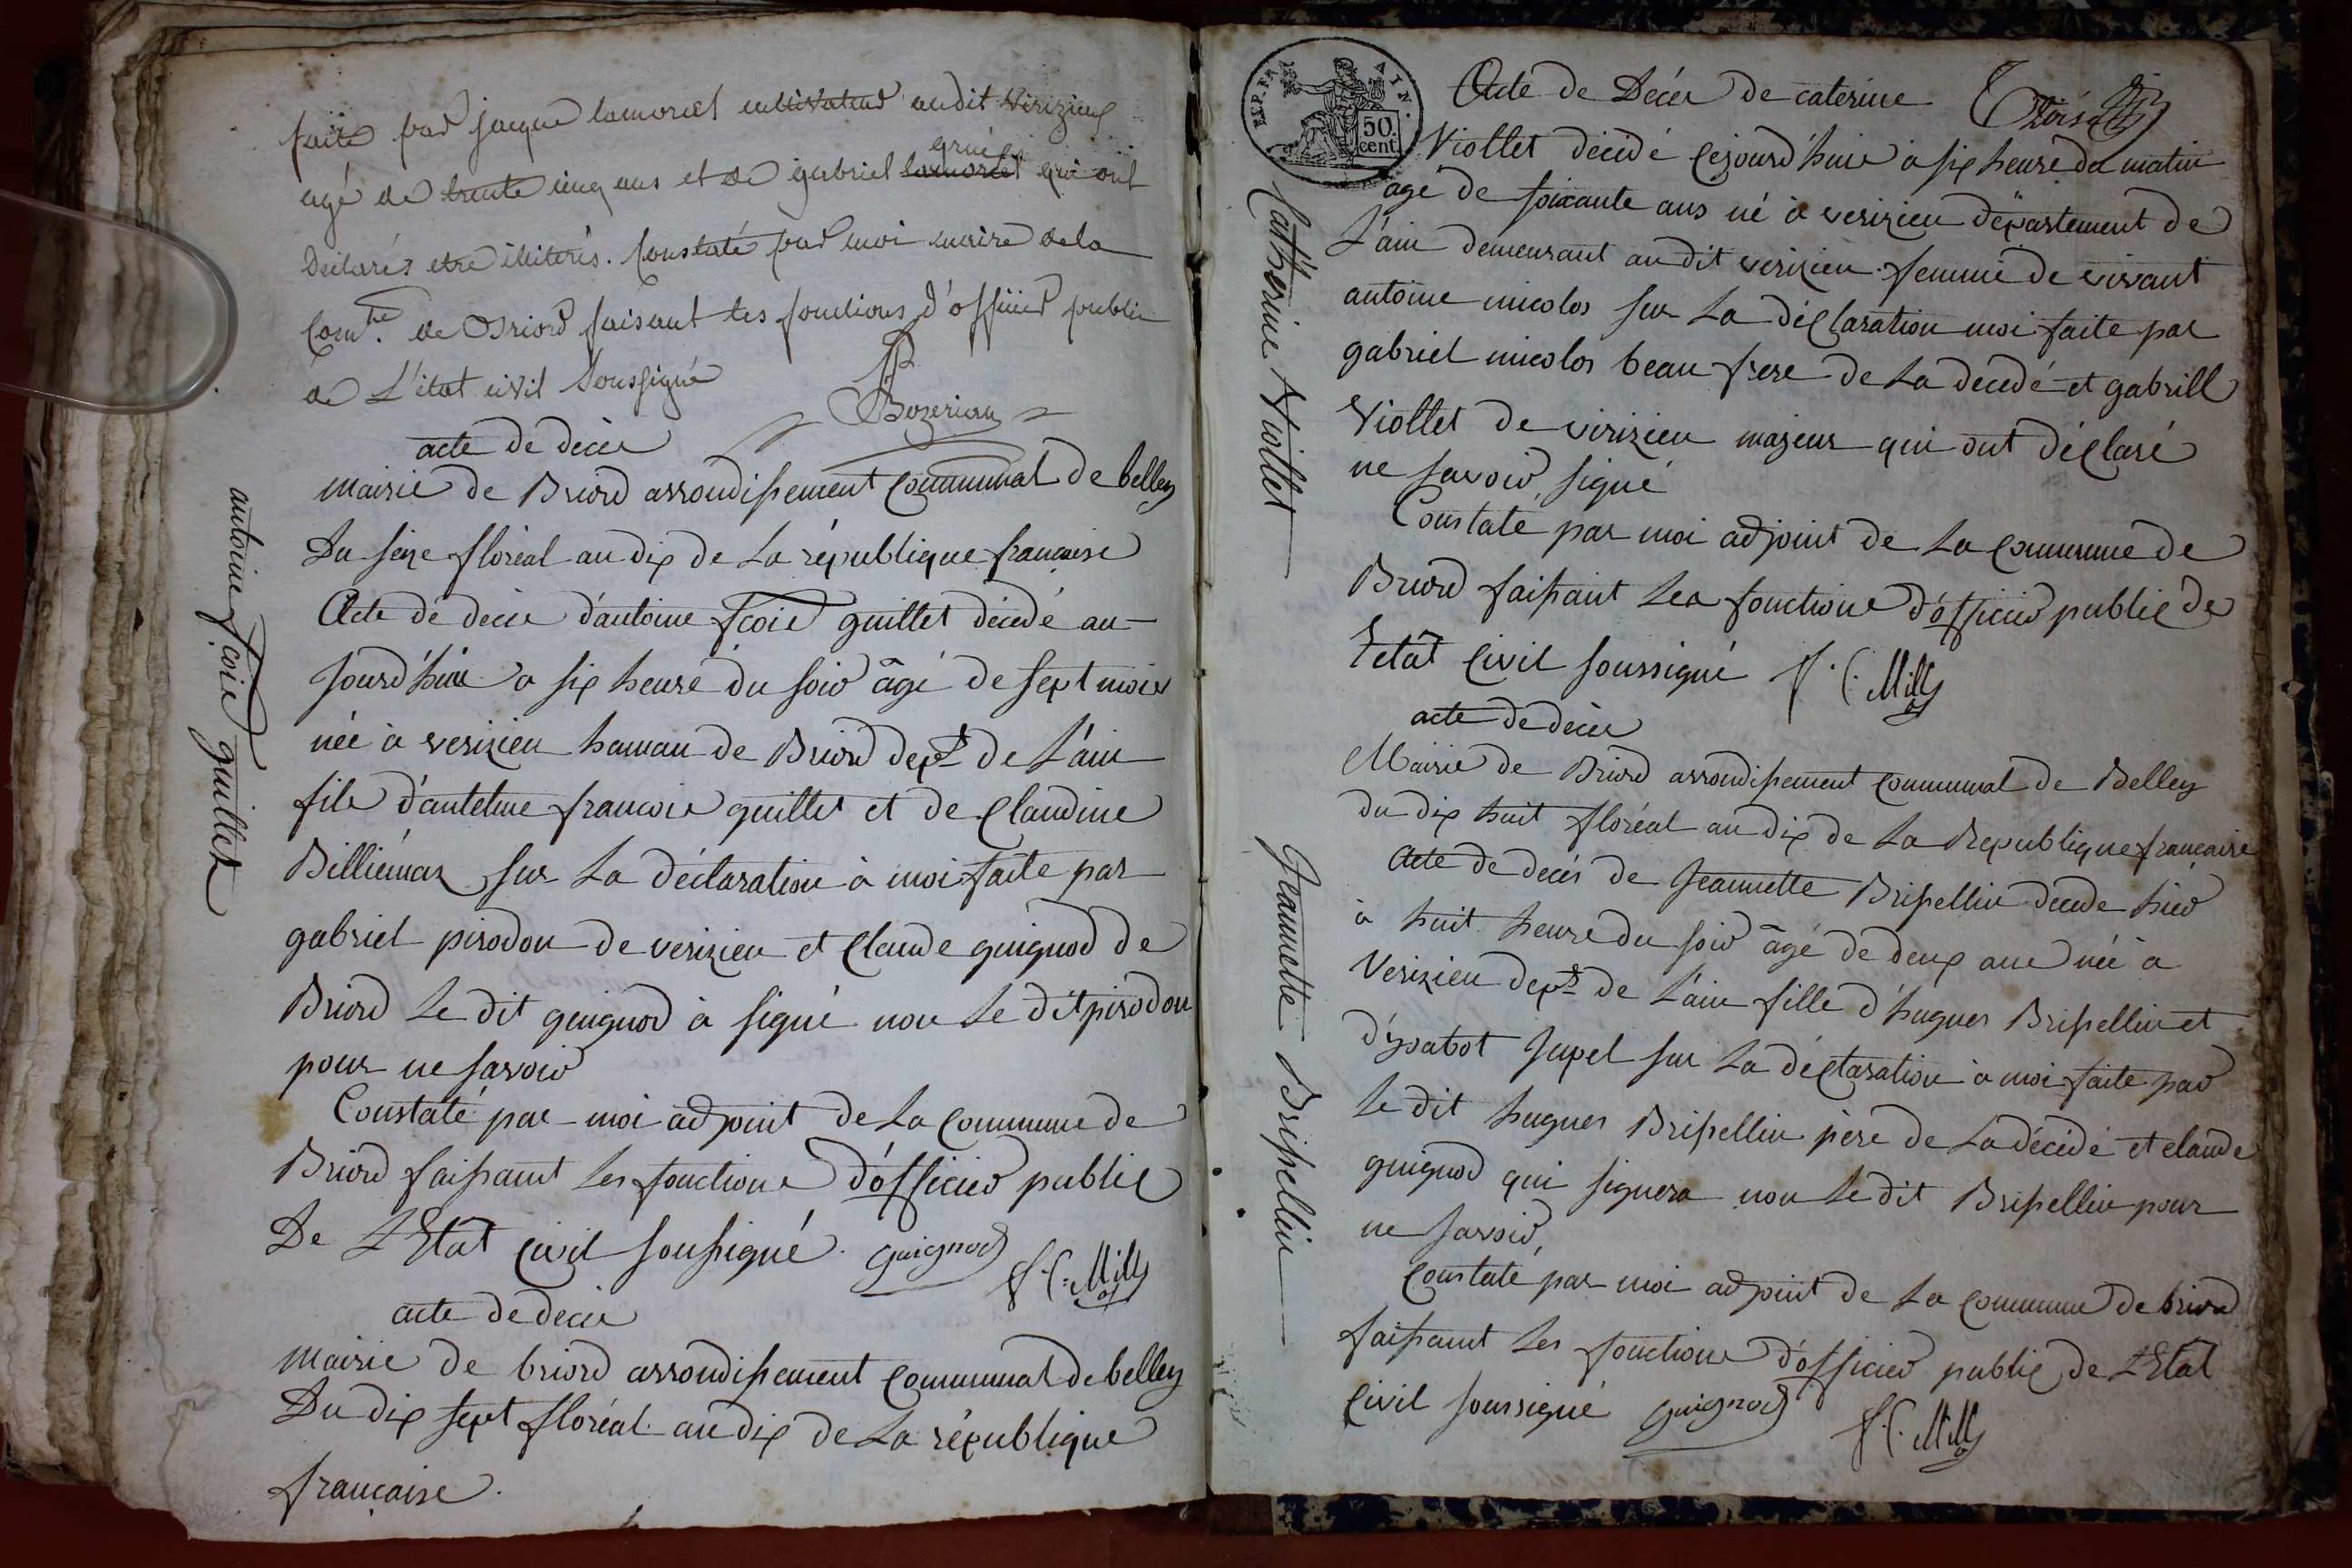 faite par jacque lamoret cultivateur audit virizieu
agé de trente cinq ans et de gabriel lamoret grué qui ont
Declarés etre illiterés. Constaté par moi maire de la
Com.ne de Briord faisant les fonctions d'officier public
de L'état civil Soussigné
Bozerian
acte de deces
mairie de Briord arrondissement communal de belley
Du seize floréal an dix de La république francaise
Acte de deces d'antoine fcois guillet décedé au-
jourd'huie a six heure du soir âgé de sept mois
née à verizieu hamau de Briord dept de L'ain
fils d'antelme francois guillet et de Claudine
Billiémaz sur La déclaration à moi faite par
gabriel pirodon de verizieu et Claude guignod de
Briord Le dit guignod à signé non Le dit pirodon
pour ne savoir
Constaté par moi adjoint de La Commune de
Briord faisant Les fonctions d'officier public
De L'Etat civil soussigné. guignod
f. C. Milly
acte de deces
mairie de briord arrondissement Communal de belley
Du dix sept floréal an dix de La république
francaise.
antoine fcois guillet
EMP. FRA
50
cent
Acte de Décès de caterine
Viollet décédé cejourd'huie à six heure du matin
agé de soixante ans né à verizieu département de
L'ain demeurant au dit verizieu femme de vivant
antoine micolos sur La déclaration moi faite par
gabriel micolos beau frere de La decedé et gabriell
Viollet de virizieu majeur qui ont déclaré
ne savoir signé
Constaté par moi adjoint de La Commune de
Briord faisant Les fonctions d'officier public de
l'etat Civil soussigné f. C. Milly
acte de deces
Mairie de Briord arrondissement Communal de Belley
du dix huit floréal an dix de La Republique francaise
Acte de decès de Jeannette Brissellin decede hier
à huit heure du soir âgé de deux ans née à
Verizieu dept de L'ain fille d'hugues Brissellin et
d'ysabot Jupel sur La déclaration à moi faite par
Le dit hugues Brissellin père de La décédé et claude
guignod qui signera non Le dit Brissellin pour
ne savoir,
Constaté par moi adjoint de La Commune de briord
faisant Les fonctions d'officier public de L'Etat
Civil soussigné guignod f. C. Milly
Catherine Viollet
Jeannette Brissellin